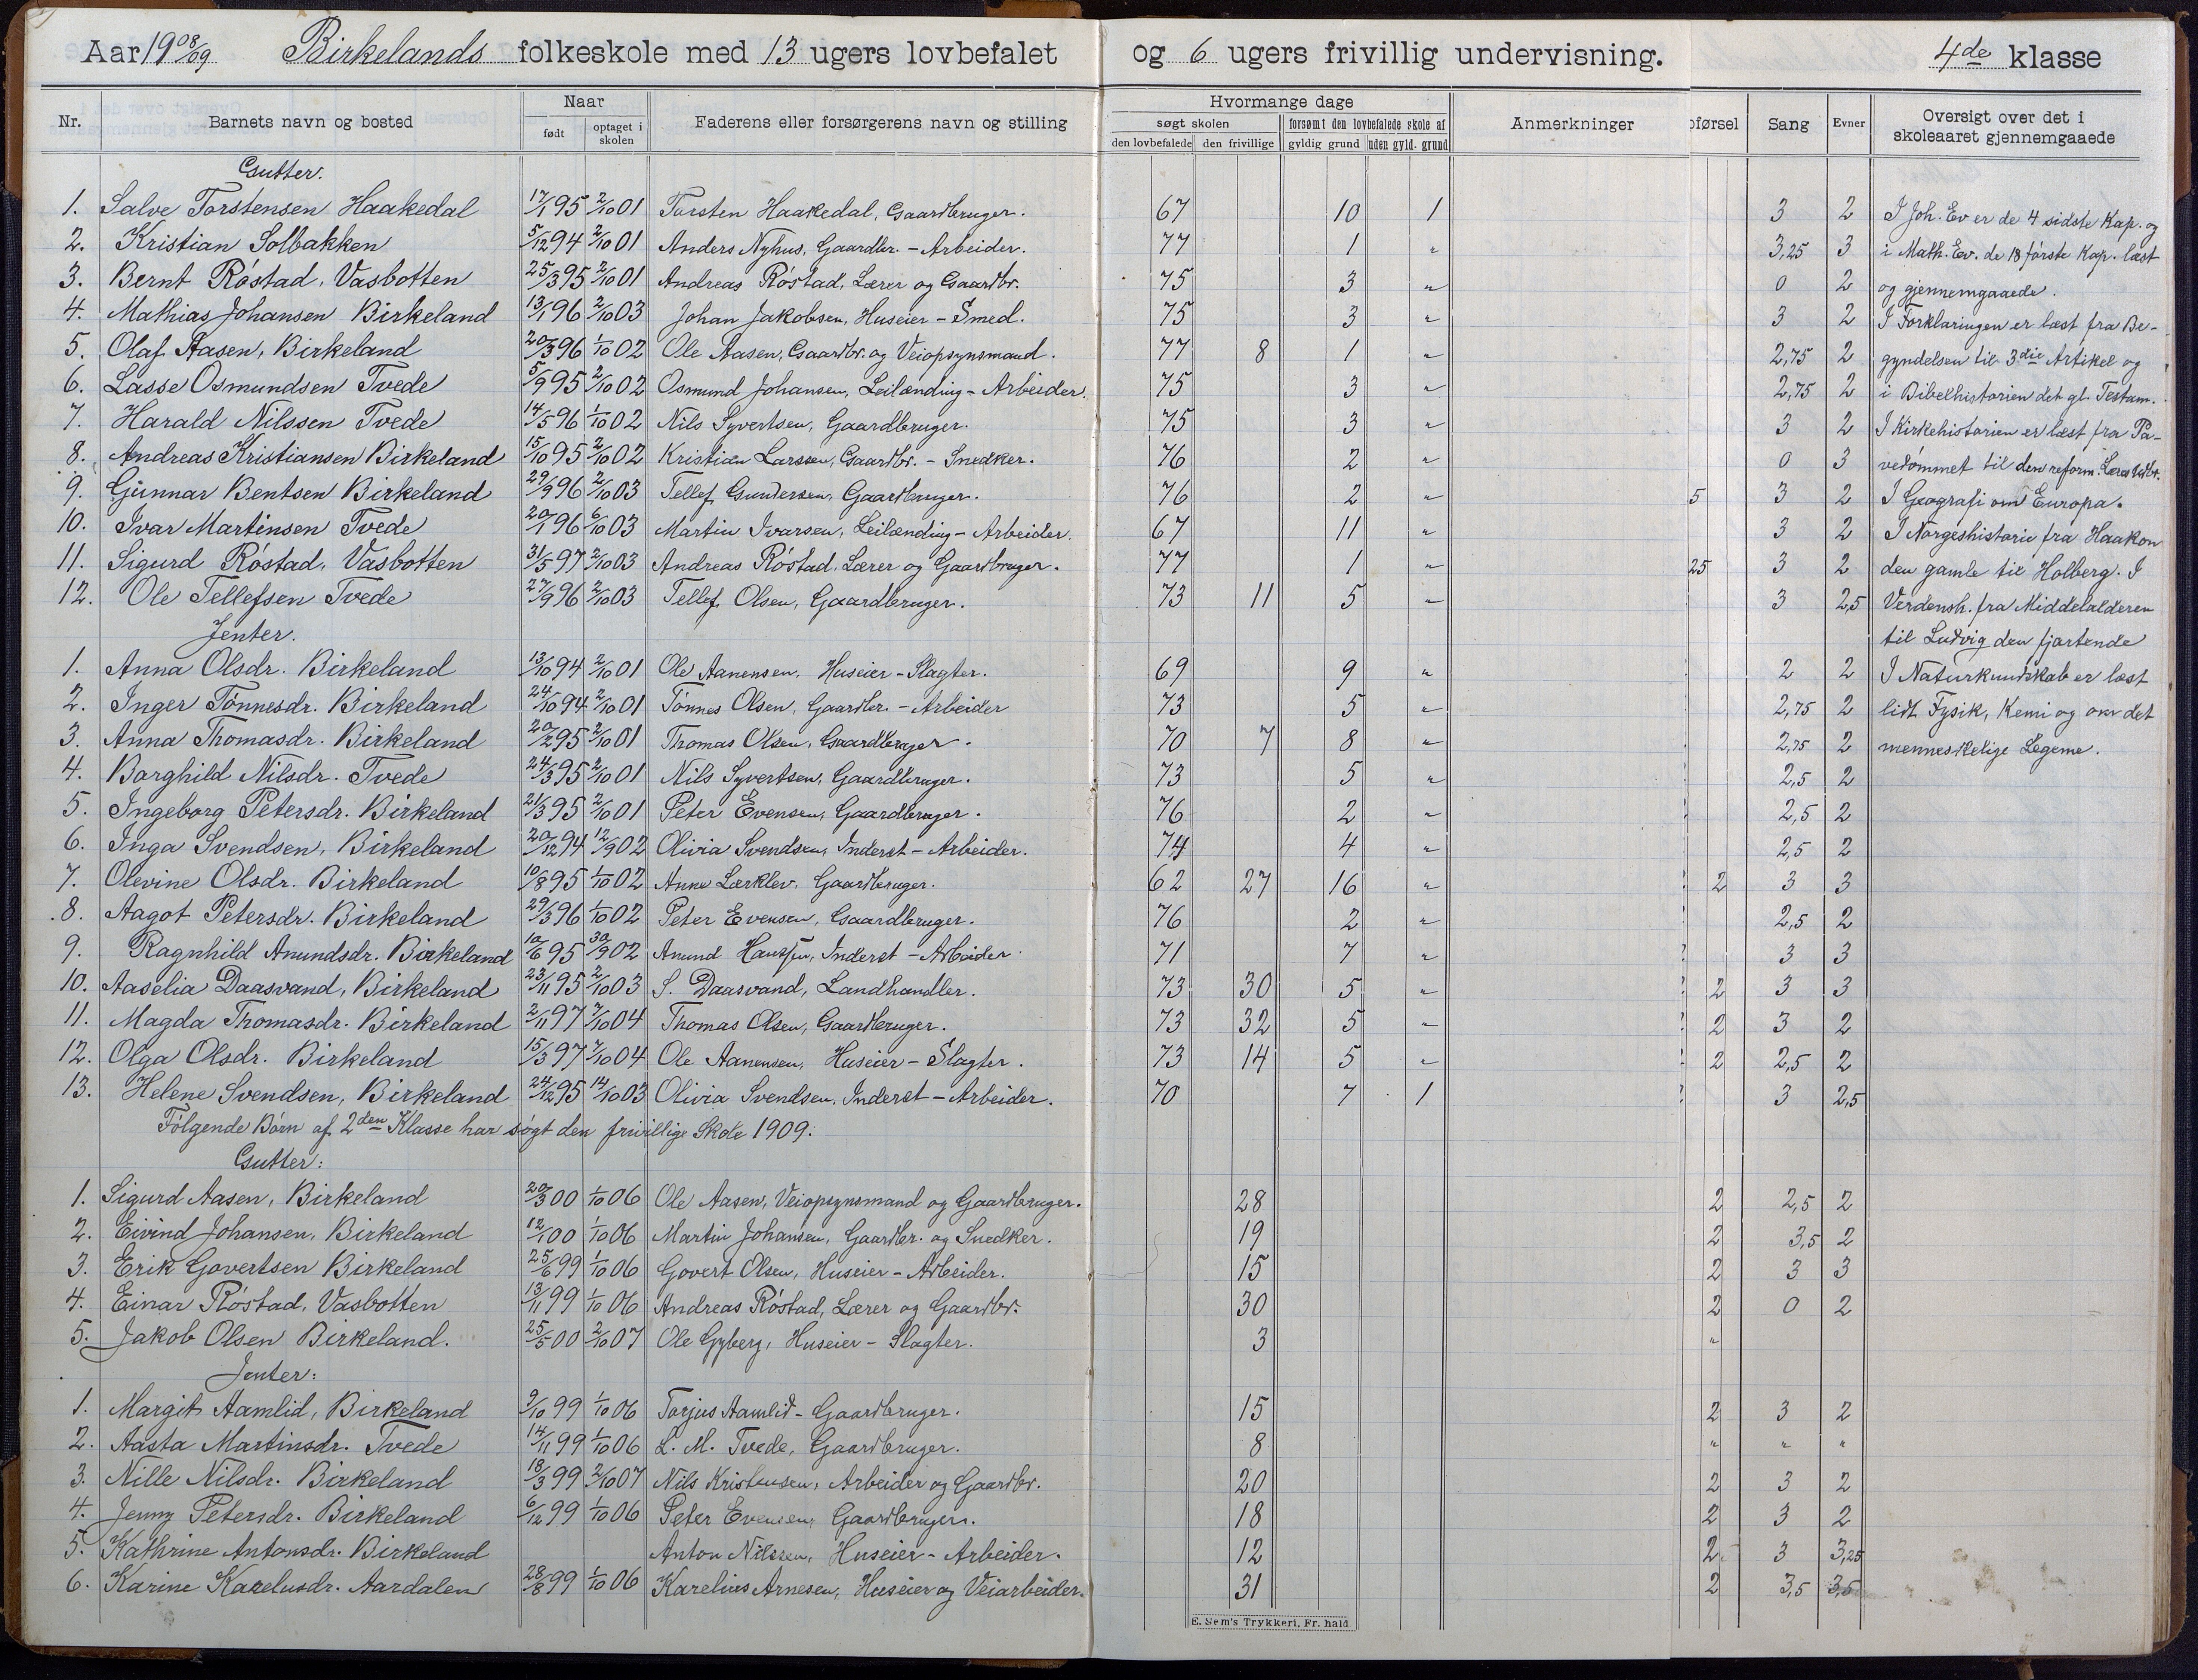 Aar 1908/09 Birkelands folkeskole med 13 ugers lovbefalet og 6 ugers frivillig undervisning. 4de klasse
Nr. Barnets navn og bosted Naar født optaget i skolen Faderens eller forsørgerens navn og stilling Hvormange dage søgt skolen den lovbefalede den frivillige forsømt den lovbefalede skole af gyldig grund uden gyld. grund Anmerkninger pførsel Sang Evner Oversigt over det i skoleaaret gjennemgaaede
Gutter.
1. Salve Torstensen Haakedal 17/1 95 2/10 01 Torsten Haakedal, Gaardbruger. 67 10 1 3 2 I Joh. Ev er de 4 sidste Kap. og
2. Kristian Solbakken 5/12 94 2/10 01 Anders Nyhus, Gaardbr. - Arbeider. 77 1 " 3,25 3 i Math. Ev. de 18 første Kap. læst
3. Bernt Røstad, Vasbotten 25/3 95 2/10 01 Andreas Røstad, Lærer og Gaardbr. 75 3 " 0 2 og gjennemgaaede.
4. Mathias Johansen Birkeland 13/1 96 2/10 03 Johan Jakobsen, Huseier - Smed. 75 3 " 3 2 I Forklaringen er læst fra Be-
5. Olaf Aasen, Birkeland 20/3 96 1/10 02 Ole Aasen, Gaardbr. og Veiopsynsmand. 77 8 1 " 2,75 2 gyndelsen til 3die Artikel og
6. Lasse Osmundsen Tvede 5/9 95 2/10 02 Osmund Johansen, Leilænding - Arbeider. 75 3 " 2,75 2 i Bibelhistorien det gl. Testam.
7. Harald Nilssen Tvede 14/5 96 1/10 02 Nils Syvertsen, Gaardbruger. 75 3 " 3 2 I Kirkehistorien er læst fra Pa-
8. Andreas Kristiansen Birkeland 15/10 95 2/10 02 Kristian Larssen, Gaardbr. - Snedker. 76 2 " 0 3 vedømmet til den reform. Læres Udbr.
9. Gunnar Bentsen Birkeland 29/9 96 2/10 03 Tellef Gundersen, Gaardbruger. 76 2 " 5 3 2 I Geografi om Europa.
10. Ivar Martinsen Tvede 20/1 96 6/10 03 Martin Ivarsen, Leilænding - Arbeider. 67 11 " 3 2 I Norgeshistorie fra Haakon
11. Sigurd Røstad, Vasbotten 31/5 97 2/10 03 Andreas Røstad, Lærer og Gaardbruger. 77 1 " 25 3 2 den gamle til Holberg. I
12. Ole Tellefsen Tvede 27/9 96 2/10 03 Tellef Olsen, Gaardbruger. 73 11 5 " 3 2,5 Verdensh. fra Middelalderen
Jenter. til Ludvig den fjortende
1. Anna Olsdr. Birkeland 13/10 94 2/10 01 Ole Aanensen, Huseier - Slagter. 69 9 " 2 2 I Naturkundskab er læst
2. Inger Tønnesdr. Birkeland 24/10 94 2/10 01 Tønnes Olsen, Gaardbr. - Arbeider 73 5 " 2,75 2 lidt Fysik, Kemi og om det
3. Anna Thomasdr. Birkeland 20/2 95 2/10 01 Thomas Olsen, Gaardbruger. 70 7 8 " 2,75 2 menneskelige Legeme.
4. Borghild Nilsdr. Tvede 24/3 95 2/10 01 Nils Syvertsen, Gaardbruger. 73 5 " 2,5 2
5. Ingeborg Petersdr. Birkeland 21/3 95 2/10 01 Peter Evensen, Gaardbruger. 76 2 " 2,5 2
6. Inga Svendsen, Birkeland 20/12 94 12/9 02 Olivia Svendsen, Inderst - Arbeider. 74 4 " 2,5 2
7. Olevine Olsdr. Birkeland 10/8 95 1/10 02 Anne Lærklev, Gaardbruger. 62 27 16 " 2 3 3
8. Aagot Petersdr. Birkeland 29/3 96 1/10 02 Peter Evensen, Gaardbruger. 76 2 " 2,5 2
9. Ragnhild Anundsdr. Birkeland 10/6 95 30/9 02 Anund Hanssen, Inderst - Arbeider. 71 7 " 3 3
10. Aaselia Daasvand, Birkeland 23/11 95 2/10 03 S. Daasvand, Landhandler. 73 30 5 " 2 3 3
11. Magda Thomasdr. Birkeland 2/11 97 7/10 04 Thomas Olsen, Gaardbruger. 73 32 5 " 2 3 2
12. Olga Olsdr. Birkeland 15/3 97 7/10 04 Ole Aanensen, Huseier - Slagter. 73 14 5 " 2 2,5 2
13. Helene Svendsen, Birkeland 24/12 95 14/10 03 Olivia Svendsen, Inderst - Arbeider. 70 7 1 3 2,5
Følgende Børn af 2den Klasse har søgt den frivillige Skole 1909:
Gutter:
1. Sigurd Aasen, Birkeland 20/3 00 1/10 06 Ole Aasen, Veiopsynsmand og Gaardbruger. 28 2 2,5 2
2. Eivind Johansen, Birkeland 12/1 00 1/10 06 Martin Johansen, Gaardbr. og Snedker. 19 2 3,5 2
3. Erik Govertsen Birkeland 25/6 99 1/10 06 Govert Olsen, Huseier - Arbeider. 15 2 3 3
4. Einar Røstad, Vasbotten 13/11 99 1/10 06 Andreas Røstad, Lærer og Gaardbr. 30 2 0 2
5. Jakob Olsen Birkeland. 25/5 00 2/10 07 Ole Gyberg, Huseier - Slagter. 3 "
Jenter:
1. Margit Aamlid, Birkeland 9/10 99 1/10 06 Torjus Aamlid - Gaardbruger. 15 2 3 2
2. Aasta Martinsdr. Tvede 14/11 99 1/10 06 L. M. Tvede, Gaardbruger. 8 " " "
3. Nille Nilsdr. Birkeland 18/3 99 2/10 07 Nils Kristensen, Arbeider og Gaardbr. 20 2 3 2
4. Jenny Petersdr. Birkeland 6/12 99 1/10 06 Peter Evensen, Gaardbruger. 18 2 3 2
5. Kathrine Antonsdr. Birkeland Anton Nilssen, Huseier - Arbeider. 12 2 3 3,25
6. Karine Kareliusdr. Aardalen 28/8 99 1/10 06 Karelius Arnesen, Huseier og Veiarbeider. 31 2 3,5 3,5
E. Sem's Trykkeri, Fr. hald